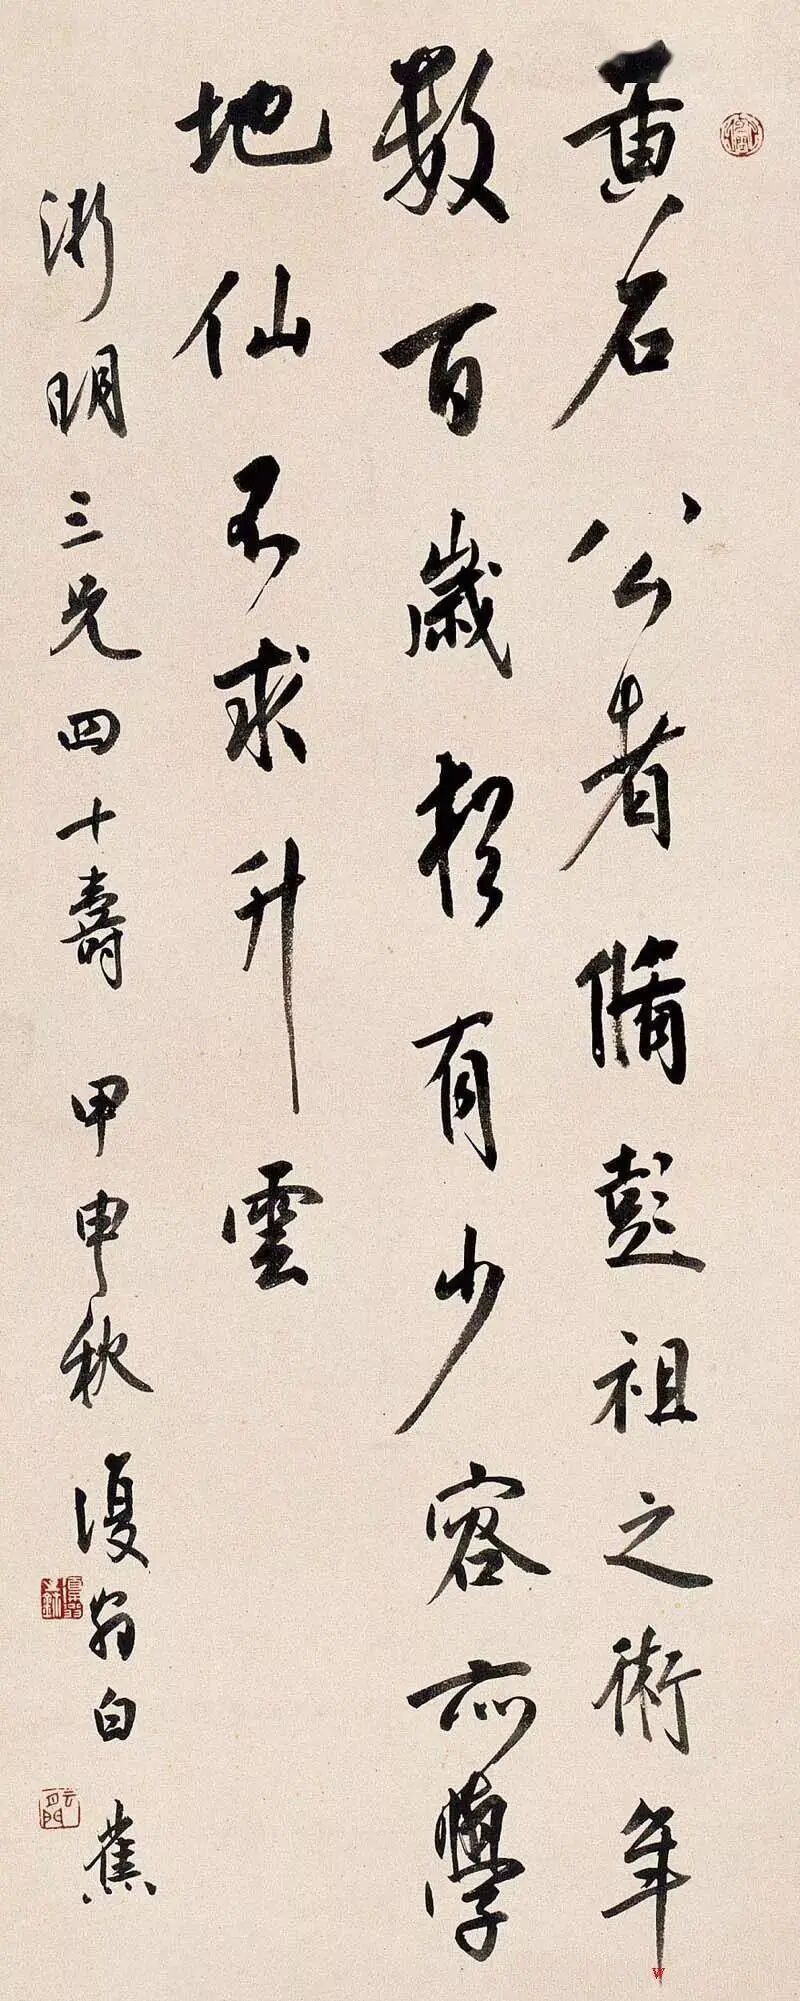 黃石公者脩彭祖之術年
數百歲猶有少容亦學
地仙不求升雲
明三兄四十壽 甲申秋 復翁白蕉
W